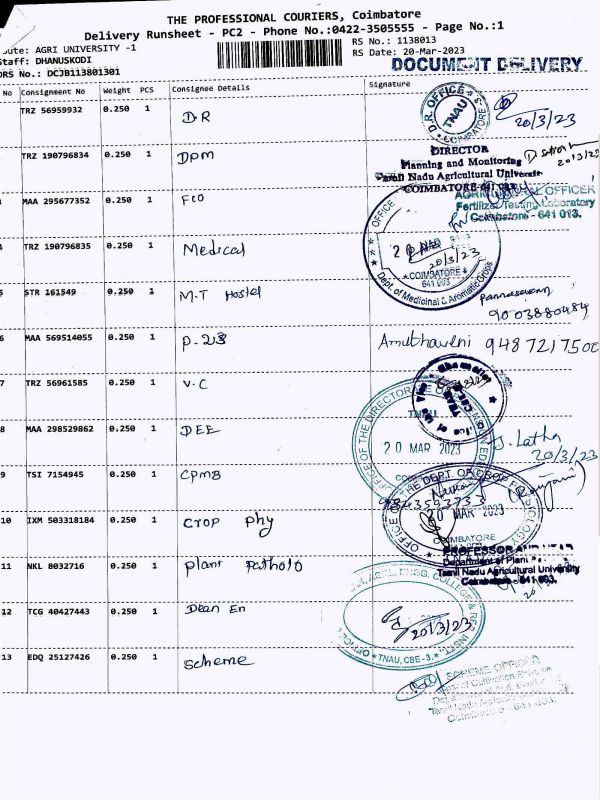 THE PROFESSIONAL COURIERS, Coimbatore
Delivery Runsheet - PC2 - Phone No.:0422-3505555 - Page No.:1
oute: AGRI UNIVERSITY -1
RS No.: 1138013
Staff: DHANUSKODI
RS Date: 20-Mar-2023
DRS No.: DCJB113801301
DOCUMENT DELIVERY
No Consignment No Weight PCS Consignee Details Signature
TRZ 56959932 0.250 1 DR
D.R. OFFICE TNAU COIMBATORE-3
20/3/23
TRZ 190796834 0.250 1 DPM
DIRECTOR
Planning and Monitoring
Tamil Nadu Agricultural University
COIMBATORE-641 003.
20/3/23
MAA 295677352 0.250 1 FCO
AGRICULTURAL OFFICER
Fertilizer Testing Laboratory
Coimbatore - 641 013.
TRZ 190796835 0.250 1 Medical
OFFICE
20 MAR
20/3/23
COIMBATORE
641 003
Dept. of Medicinal & Aromatic Crops
STR 161549 0.250 1 M.T Hostel
9003880484
6 MAA 569514055 0.250 1 P-23
Amuthaveni 9487217500
7 TRZ 56961585 0.250 1 V.C
8 MAA 298529862 0.250 1 DEE
OFFICE OF THE DIRECTORATE
TNAU
20 MAR 2023
S. Latha
20/3/23
9 TSI 7154945 0.250 1 CPMB
10 IXM 503318184 0.250 1 crop phy
OFFICE OF THE DEPT. OF CROP PHYSIOLOGY
20 MAR 2023
COIMBATORE
11 NKL 8032716 0.250 1 plant Patholo
PROFESSOR AND HEAD
Department of Plant
Tamil Nadu Agricultural University
Coimbatore - 641 003.
12 TCG 40427443 0.250 1 Dean En
20/3/23
TNAU, CBE-3.
13 EDQ 25127426 0.250 1 scheme
SCHEME OFFICER
Coimbatore - 641 003.